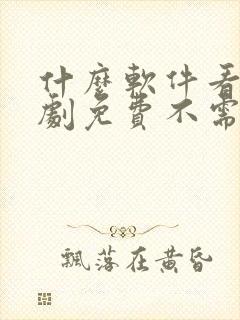 什麼軟件看
劇免費不需
飄落在黃昏